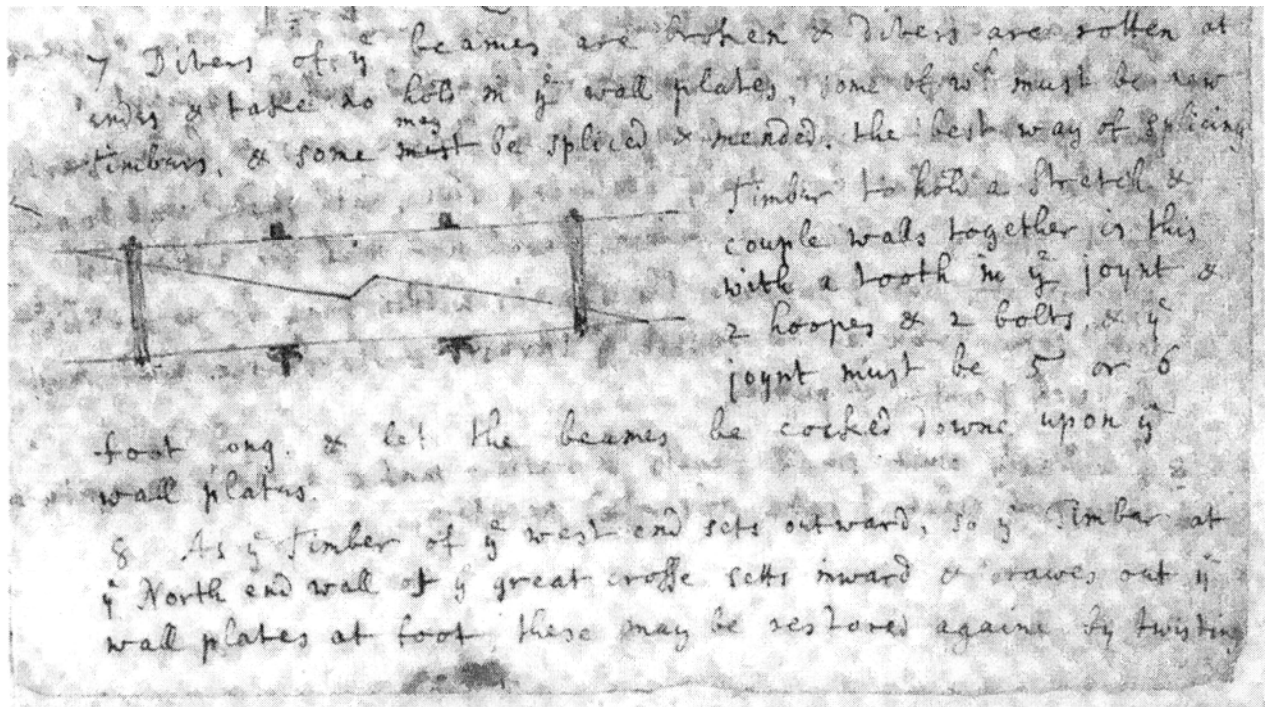 7 Divers of yᵉ beames are broken & divers are rotten at
endes & take no hold in yᵉ wall plates, some of wᶜʰ must be new
may
Timbers, & some must be spliced & mended. the best way of splicing
Timber to hold a stretch &
couple walls together is this
with a tooth in yᵉ joynt &
2 hoopes & 2 bolts, & yᵉ
joynt must be 5 or 6
foot long. & let the beames be cocked downe upon yᵉ
wall plates.
8 As yᵉ Timber of yᵉ west end sets outward, so yᵉ Timber at
yᵉ North end wall of yᵉ great crosse setts inward & drawes out yᵉ
wall plates at foot, these may be restored againe by twisting